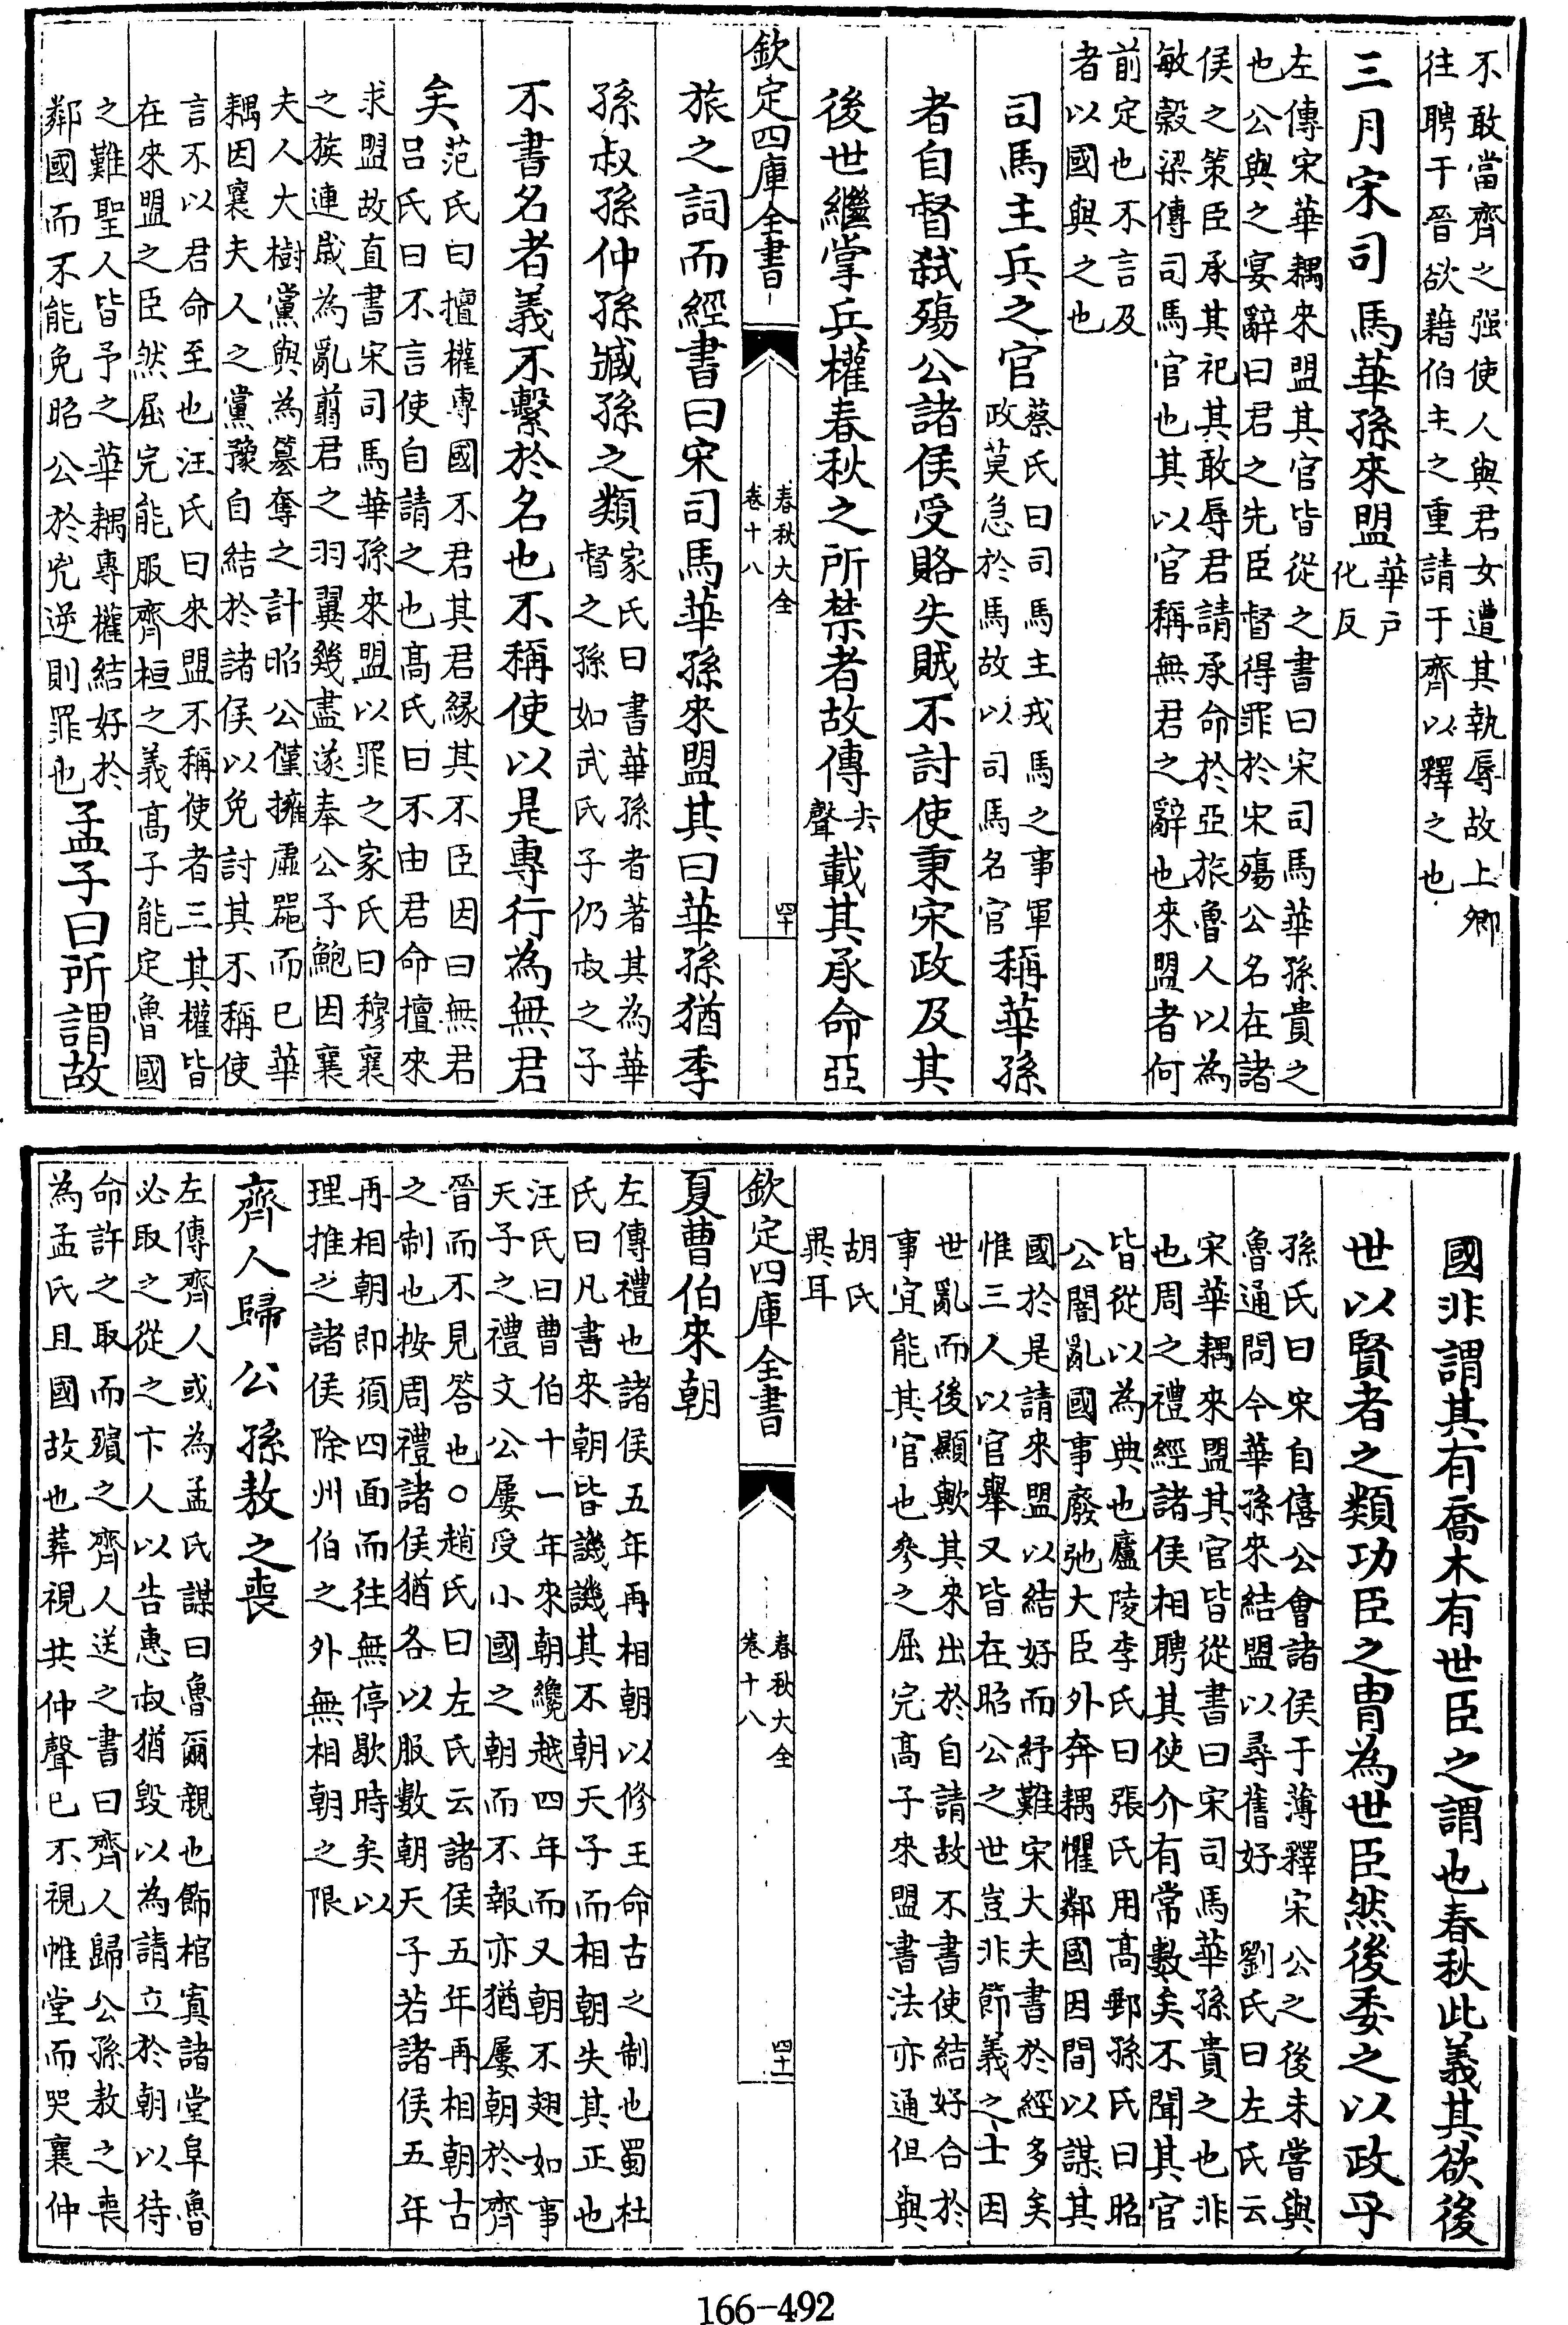 不敢當齊之强使人與君女遭其執辱故上卿
往聘于晉欲藉伯主之重請于齊以釋之也
三月宋司馬華孫來盟華户
化反
左傳宋華耦來盟其官皆從之書曰宋司馬華孫貴之
也公與之宴辭曰君之先臣督得罪於宋殤公名在諸
侯之策臣承其祀其敢辱君請承命於亞旅魯人以為
敏穀梁傳司馬官也其以官稱無君之辭也來盟者何
前定也不言及
者以國與之也
司馬主兵之官蔡氏曰司馬主戎馬之事軍
政莫急於馬故以司馬名官稱華孫
者自督弑殤公諸侯受賂失賊不討使秉宋政及其
後世繼掌兵權春秋之所禁者故傳去
聲載其承命亞
欽定四庫全書
春秋大全
卷十八
四十
旅之詞而經書曰宋司馬華孫來盟其曰華孫猶季
孫叔孫仲孫臧孫之類家氏曰書華孫者著其為華
督之孫如武氏子仍叔之子
不書名者義不繫於名也不稱使以是專行為無君
矣范氏曰擅權專國不君其君緣其不臣因曰無君
吕氏曰不言使自請之也髙氏曰不由君命擅來
求盟故直書宋司馬華孫來盟以罪之家氏曰穆襄
之族連歲為亂翦君之羽翼幾盡遂奉公子鮑因襄
夫人大樹黨與為簒奪之計昭公僅擁虚器而已華
耦因襄夫人之黨豫自結於諸侯以免討其不稱使
言不以君命至也汪氏曰來盟不稱使者三其權皆
在來盟之臣然屈完能服齊桓之義髙子能定魯國
之難聖人皆予之華耦專權結好於
鄰國而不能免昭公於兇逆則罪也孟子曰所謂故
國非謂其有喬木有世臣之謂也春秋此義其欲後
世以賢者之類功臣之胄為世臣然後委之以政乎
孫氏曰宋自僖公會諸侯于薄釋宋公之後未嘗與
魯通問今華孫來結盟以尋舊好 劉氏曰左氏云
宋華耦來盟其官皆從書曰宋司馬華孫貴之也非
也周之禮經諸侯相聘其使介有常數矣不聞其官
皆從以為典也廬陵李氏曰張氏用髙郵孫氏曰昭
公闇亂國事廢弛大臣外奔耦懼鄰國因間以謀其
國於是請來盟以結好而紓難宋大夫書於經多矣
惟三人以官舉又皆在昭公之世豈非節義之士因
世亂而後顯歟其來出於自請故不書使結好合於
事宜能其官也參之屈完髙子來盟書法亦通但與
胡氏
異耳
欽定四庫全書
春秋大全
卷十八
四十一
夏曹伯來朝
左傳禮也諸侯五年再相朝以修王命古之制也蜀杜
氏曰凡書來朝皆譏譏其不朝天子而相朝失其正也
汪氏曰曹伯十一年來朝纔越四年而又朝不翅如事
天子之禮文公屢受小國之朝而不報亦猶屢朝於齊
晉而不見答也○趙氏曰左氏云諸侯五年再相朝古
之制也按周禮諸侯猶各以服數朝天子若諸侯五年
再相朝即須四面而往無停歇時矣以
理推之諸侯除州伯之外無相朝之限
齊人歸公孫敖之喪
左傳齊人或為孟氏謀曰魯爾親也飾棺寘諸堂阜魯
必取之從之卞人以告惠叔猶毀以為請立於朝以待
命許之取而殯之齊人送之書曰齊人歸公孫敖之喪
為孟氏且國故也葬視共仲聲已不視帷堂而哭襄仲
166-492